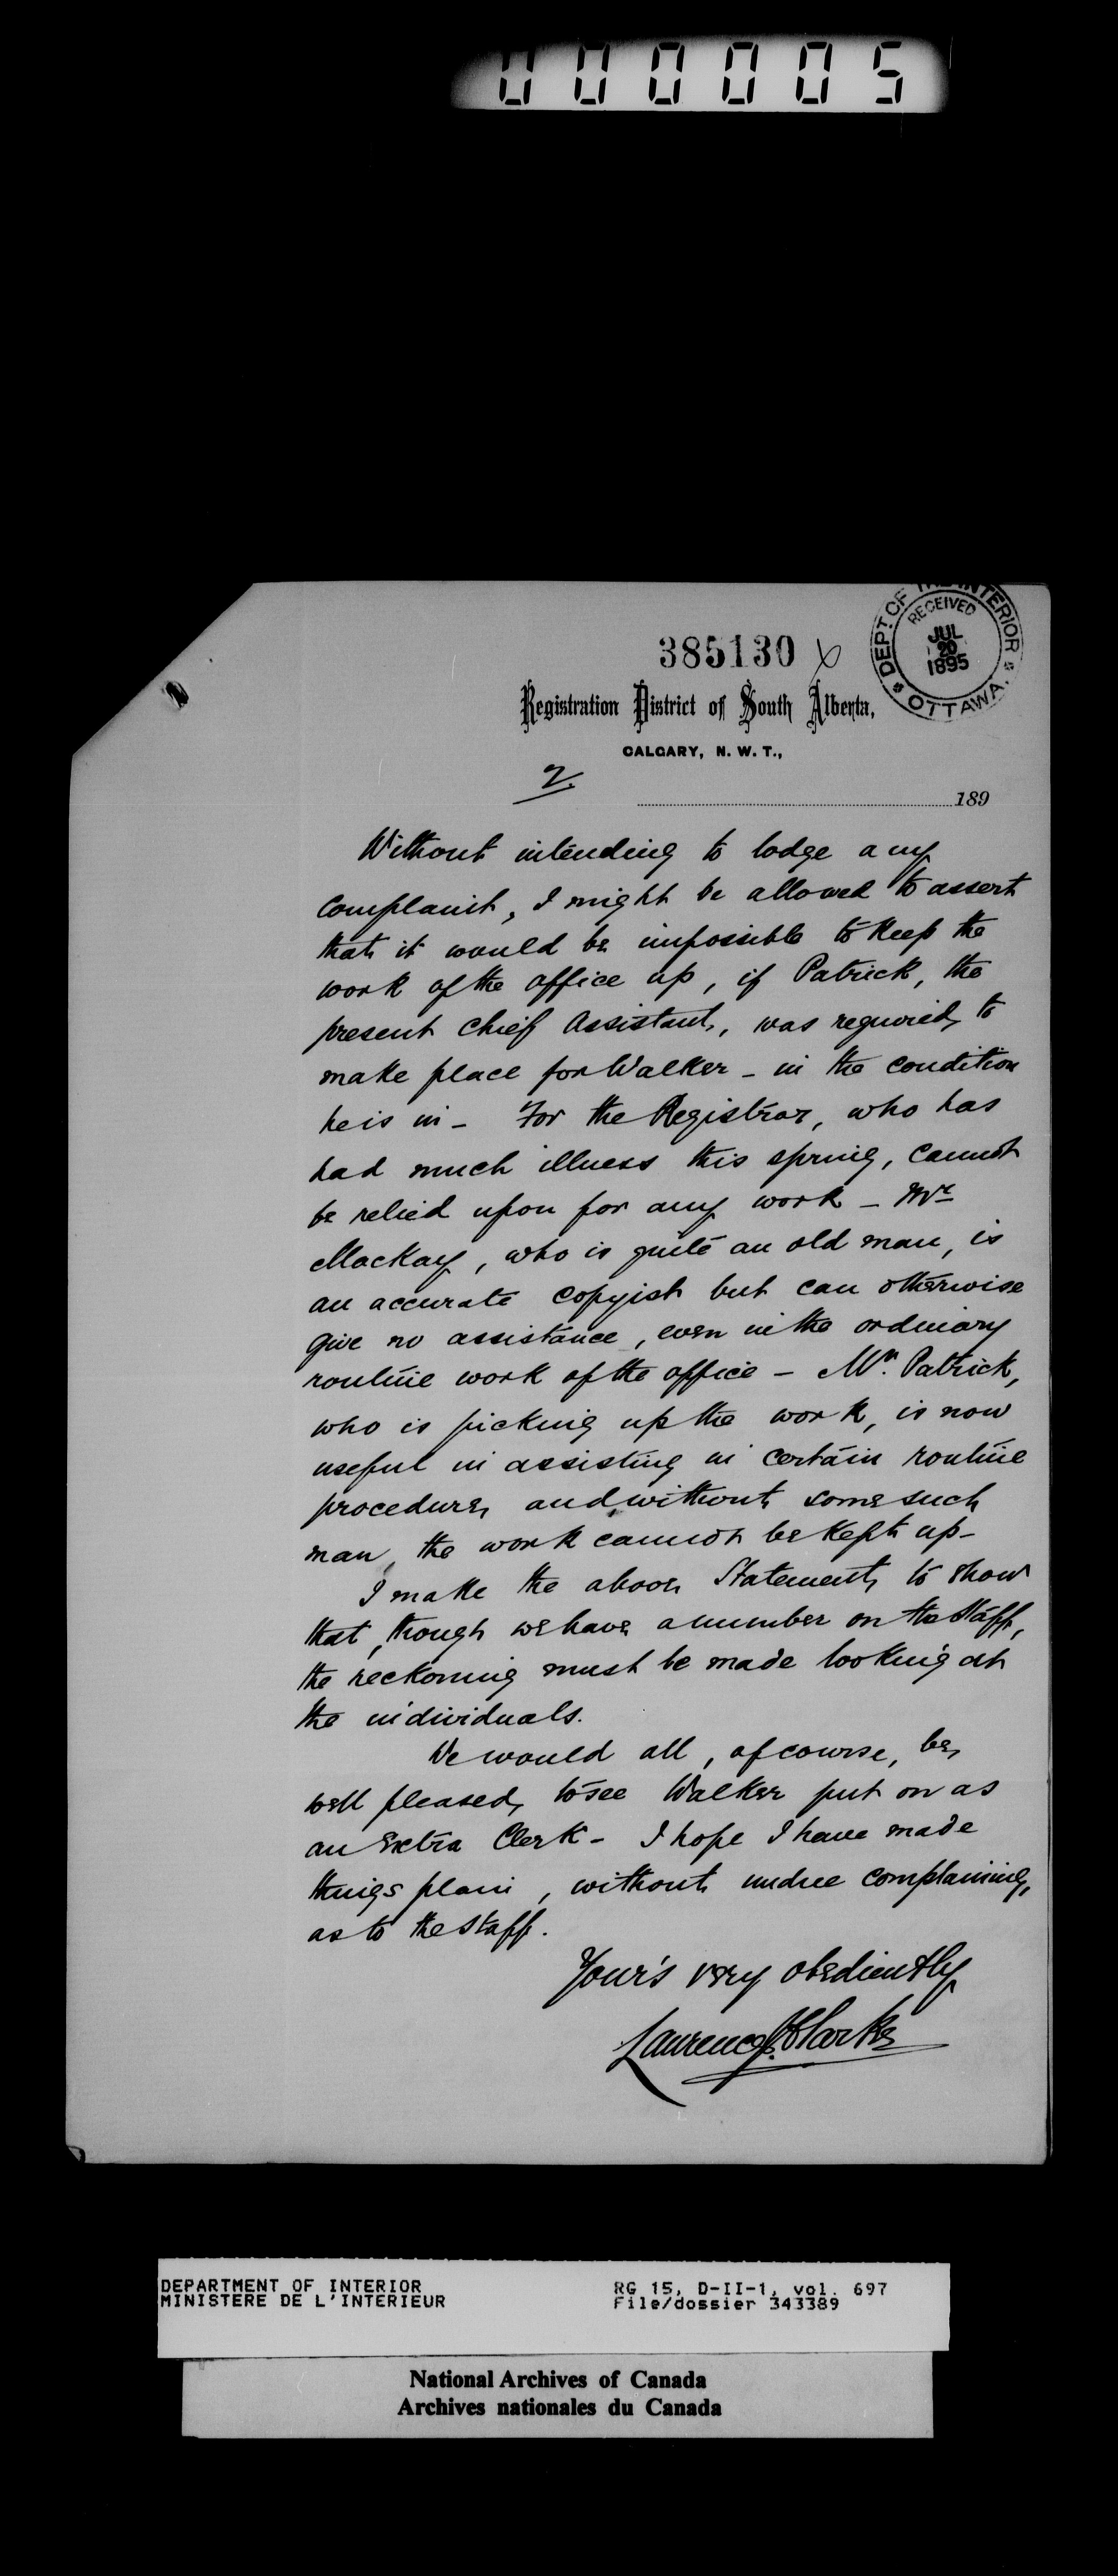 000005
385130
DEPT. OF THE INTERIOR
RECEIVED
JUL
20
1895
OTTAWA.
Registration District of South Alberta,
CALGARY, N. W. T.,
2.
189
Without intending to lodge any
complaint, I might be allowed to assert
that it would be impossible to keep the
work of the office up, if Patrick, the
present Chief Assistant, was required to
make place for Walker - in the condition
he is in - For the Registrar, who has
had much illness this spring, cannot
be relied upon for any work - Mr
Mackay, who is quite an old man, is
an accurate copyist but can otherwise
give no assistance, even in the ordinary
routine work of the office - Mr. Patrick,
who is picking up the work, is now
useful in assisting in certain routine
procedure, and without some such
man, the work cannot be kept up -
I make the above Statement, to show
that, though we have a number on the Staff,
the reckoning must be made looking at
the individuals.
We would all, of course, be
well pleased, to see Walker put on as
an Extra Clerk - I hope I have made
things plain, without undue complaining,
as to the staff.
Your's very obediently
Laurence J. Clarke
DEPARTMENT OF INTERIOR
MINISTERE DE L'INTERIEUR
RG 15, D-II-1, vol. 697
File/dossier 343389
National Archives of Canada
Archives nationales du Canada